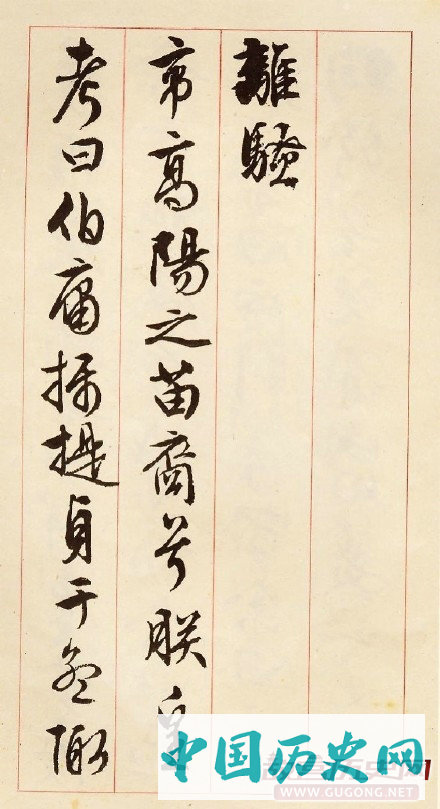 離騷
帝高陽之苗裔兮朕皇
考曰伯庸攝提貞于孟陬
中国历史网
WWW.GUGONG.NET